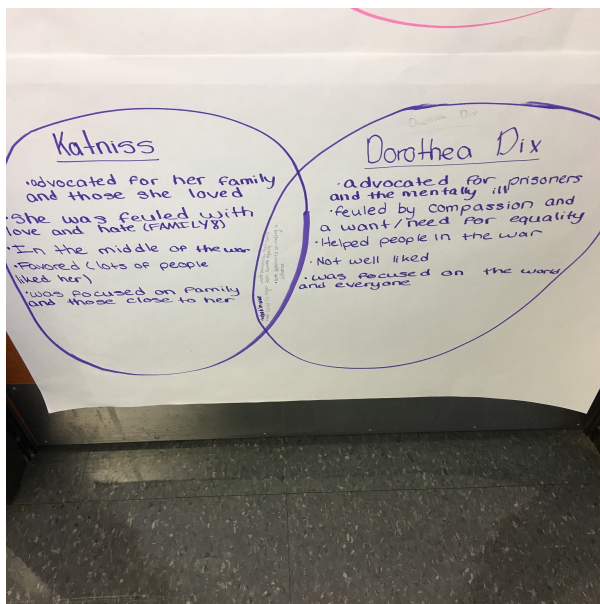 Katniss
•advocated for her family
and those she loved
•She was feuled with
love and hate (FAMILY8)
•In the middle of the war
•Favored (lots of people
liked her)
•was focused on family
and those close to her
Dorothea Dix
Dorothea Dix
•advocated for prisoners
and the mentally ill
•feuled by compassion and
a want/need for equality
•Helped people in the war
•Not well liked
•was focused on the world
and everyone